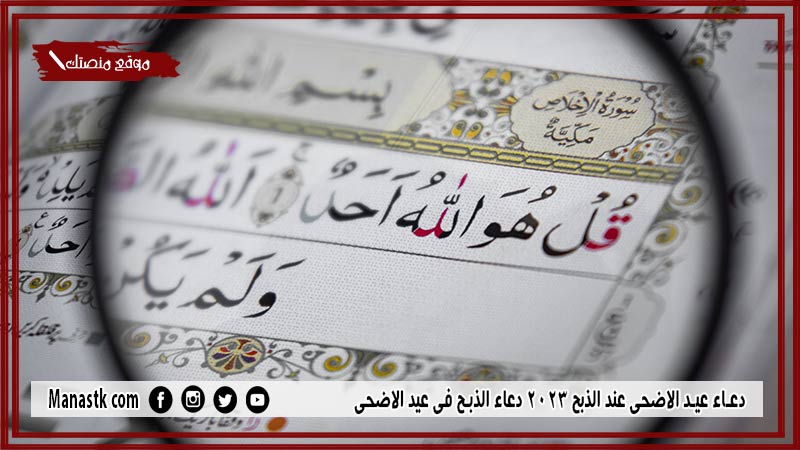 موقع منصتك
بِسْمِ اللهِ
سُورَةُ الْاِخْلَاصِ
مَكِّيَّةٌ
قُلْ هُوَ اللّٰهُ اَحَدٌ ۝١ اَللّٰهُ
وَلَمْ يَكُنْ
دعاء عيد الاضحى عند الذبح ٢٠٢٣ دعاء الذبح فى عيد الاضحى
Manastk com